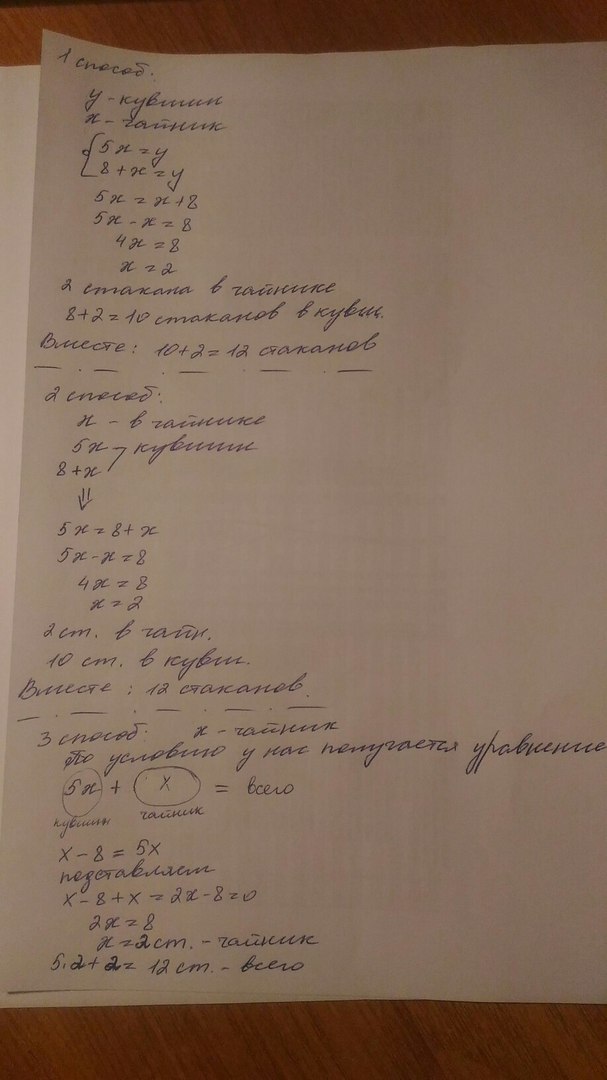 1 способ:
y - кувшин
x - чайник
{5x = y
8 + x = y
5x = x + 8
5x - x = 8
4x = 8
x = 2
2 стакана в чайнике
8 + 2 = 10 стаканов в кувш.
Вместе: 10 + 2 = 12 стаканов
2 способ:
x - в чайнике
5x - кувшин
8 + x
⇓
5x = 8 + x
5x - x = 8
4x = 8
x = 2
2 ст. в чайн.
10 ст. в кувш.
Вместе: 12 стаканов.
3 способ: x - чайник
По условию у нас получается уравнение
5x + x = всего
кувшин чайник
x - 8 = 5x
подставляем
x - 8 + x = 2x - 8 = 0
2x = 8
x = 2 ст. - чайник
5·2 + 2 = 12 ст. - всего